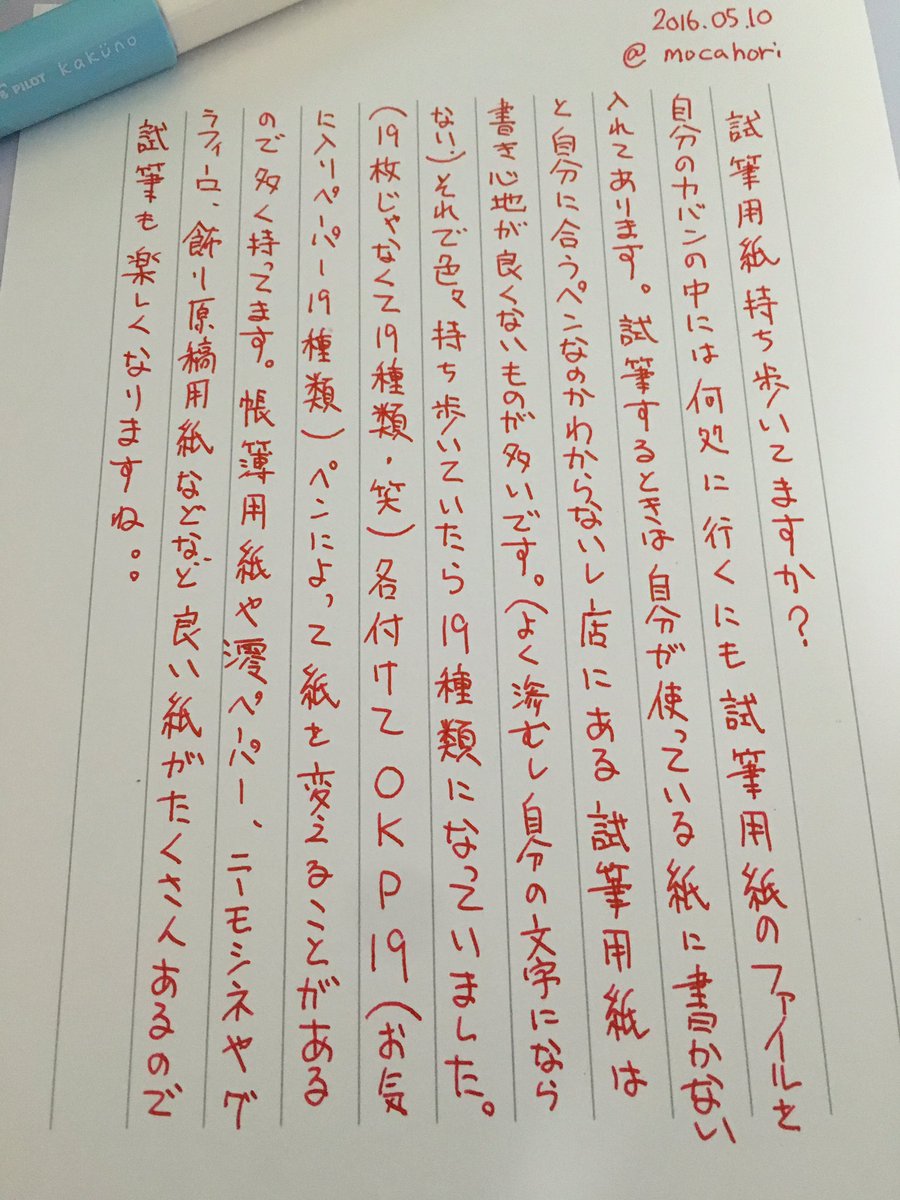 PILOT kaküno
2016.05.10
@mocahori
試筆用紙持ち歩いてますか?
自分のカバンの中には何処に行くにも試筆用紙のファイルを
入れてあります。試筆するときは自分が使っている紙に書かない
と自分に合うペンなのかわからないし店にある試筆用紙は
書き心地が良くないものが多いです。(よく滲むし自分の文字になら
ない。)それで色々持ち歩いていたら19種類になっていました。
(19枚じゃなくて19種類・笑)各付けてOKP19(お気
に入りペーパー19種類)ペンによって紙を変えることがある
ので多く持ってます。帳簿用紙や澪ペーパー、ニーモシネやグ
ラフィーロ、飾り原稿用紙などなど良い紙がたくさんあるので
試筆も楽しくなりますね。。